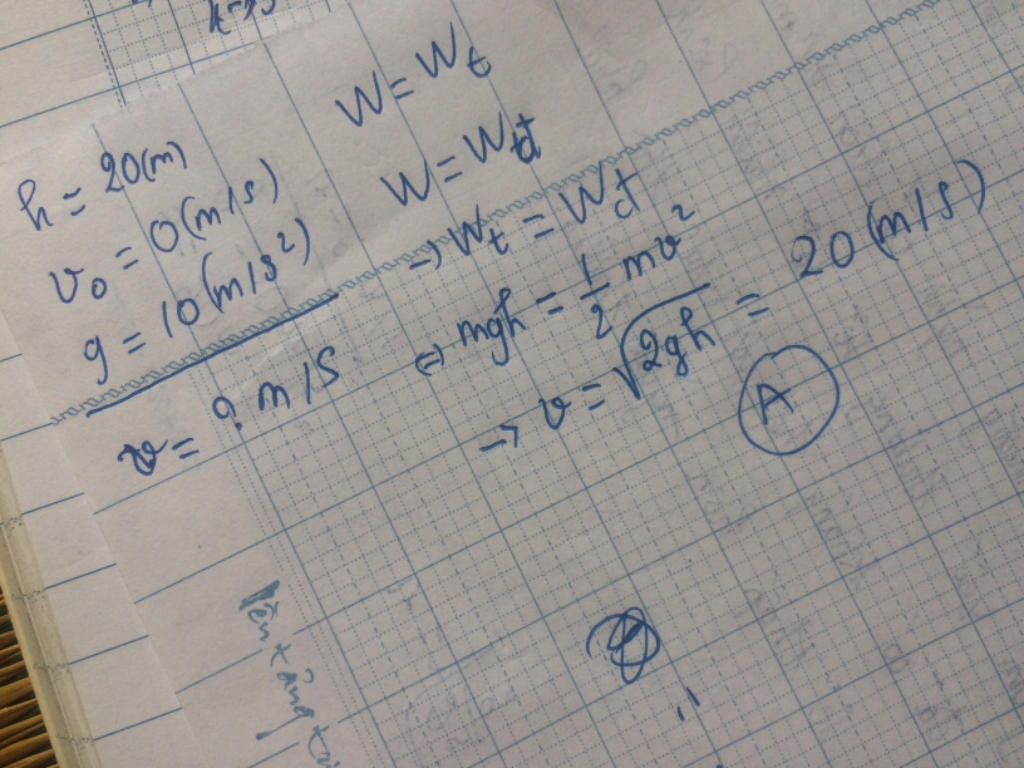 h = 20(m)
v₀ = 0(m/s)
g = 10(m/s²)
v = ? m/s
W = Wₜ
W = Wđ
→ Wₜ = Wđ
⇔ mgh = 1/2 mv²
→ v = √2gh = 20 (m/s)
A